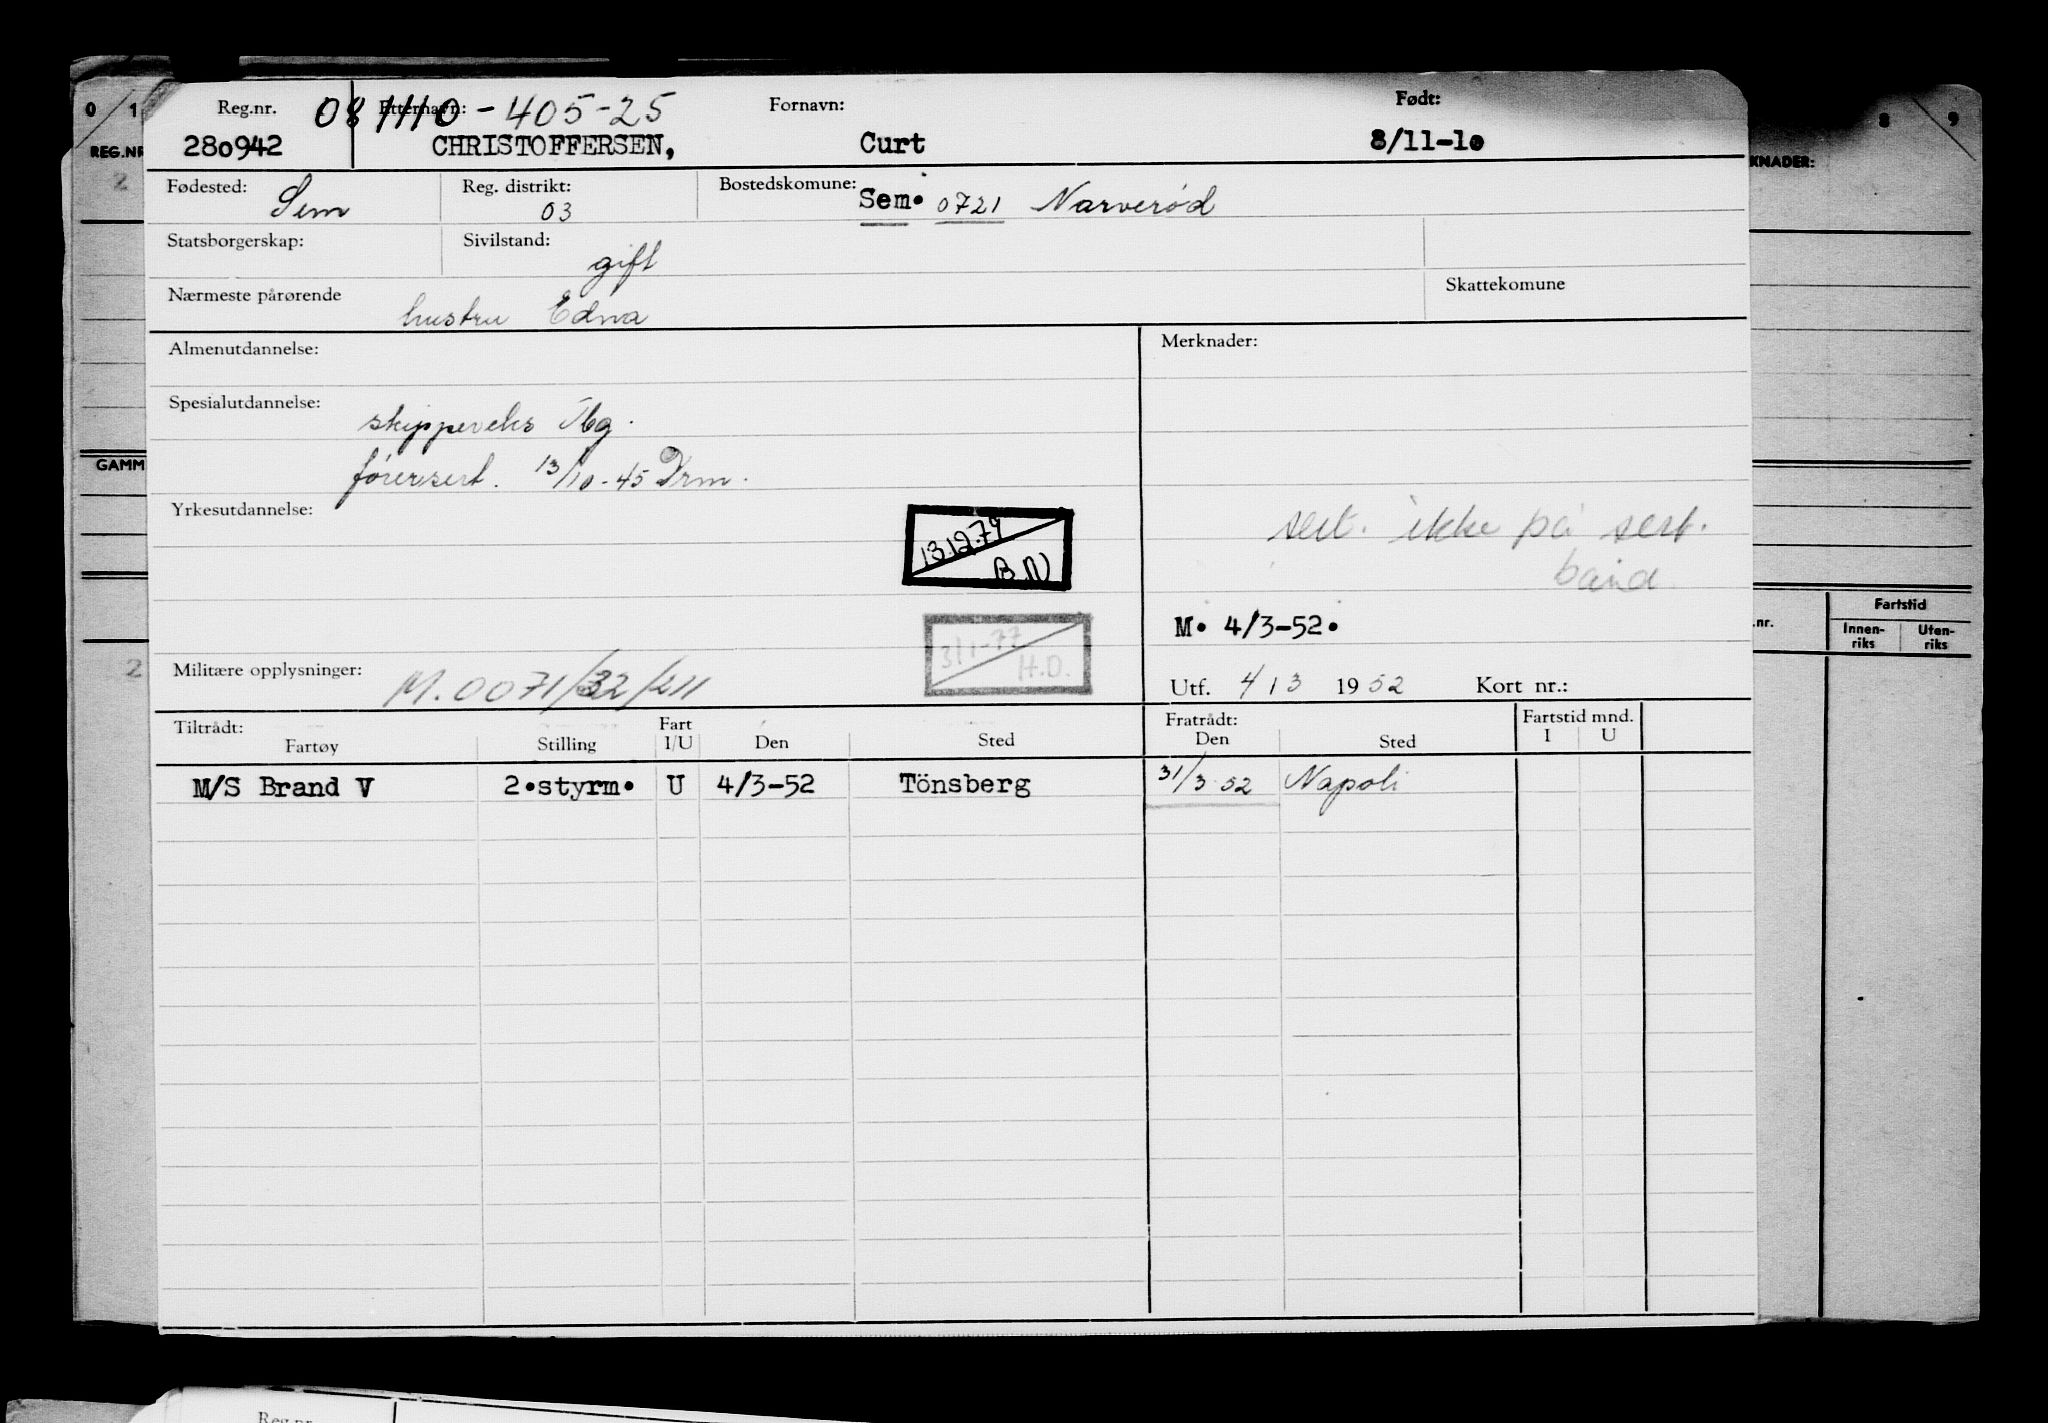 0 1
8 9
REG.NR
KNADER:
2
GAMM
2
.nr.
Fartstid
Innen-riks
Uten-riks
Reg.nr. Etternavn: Fornavn: Født:
081110-405-25
280942 CHRISTOFFERSEN, Curt 8/11-10
Fødested: Sem Reg. distrikt: 03 Bostedskomune: Sem. 0721 Narverød
Statsborgerskap: Sivilstand: gift
Nærmeste pårørende hustru Edna Skattekomune
Almenutdannelse: Merknader:
Spesialutdannelse: skippereks Tbg.
førersert. 13/10-45 Drm.
Yrkesutdannelse:
13.12.79
B.N
sert. ikke på sert.
bånd.
M. 4/3-52.
3/1-77
H.D.
Militære opplysninger: M.0071/32/211
Utf. 4/3 1952 Kort nr.:
Tiltrådt: Fart Fratrådt: Fartstid mnd.
Fartøy Stilling I/U Den Sted Den Sted I U
M/S Brand V 2.styrm. U 4/3-52 Tönsberg 31/3 52 Napoli
Reg.nr.